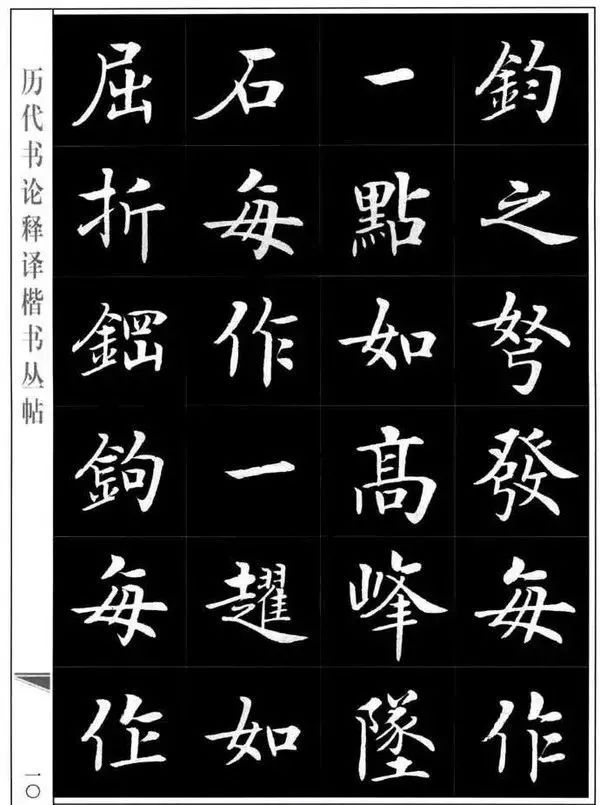 鈞之弩發每作
一點如髙峰墜
石每作一趯如
屈折鋼鉤每作
历代书论释译楷书丛帖
一〇